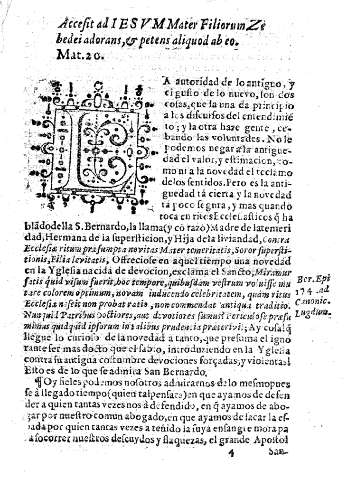 Accesit ad IESVM Mater Filiorum Ze
bedei adorans, & petens aliquod ab eo.
Mat. 20.
LA autoridad de lo antiguo, y
el gusto de lo nuevo, son dos
cosas, que la una da principio
a los discursos del entendimiẽ
to; y la otra hace gente, ce-
bando las voluntades. No le
podemos negar a la antigue-
dad el valor, y estimacion, co-
mo ni a la novedad el reclamo
de los sentidos. Pero es la anti-
guedad tã cierta y la novedad
tã poco segura, y mas quando
toca en rites Eclesiasticos q̃ ha
blãdo della S. Bernardo, la llama (y cõ razõ) Madre de la temeri
dad, Hermana de la supersticion, y Hija de la liviandad, contra
Ecclesiæ ritum præsumpta novitas Mater temeritatis, Soror supersti-
tionis, Filia levitatis, Ofreciose en aquel tiempo una novedad
en la Yglesia nacida de devocion, exclama el Sancto, Miramur
satis quid visum fuerit, hoc tempore, quibusdam vestrum voluisse mu
tare colorem optimum, novam inducendo celebritatem, quam ritus
Ecclesiæ nescit non probat ratio, non commendat antiqua traditio.
Nunquid Patribus doctiores, aut devotiores sumus? Periculose præsu
mimus quidquid ipsorum in talibus prudentia præterivi; Ay cosa! q̃
llegue lo curioso de la novedad a tanto, que presuma el igno
rante ser mas docto que el sabio, introduciendo en la Yglesia
contra su antigua costumbre devociones forçadas, y violentas!
Esto es de lo que se admira San Bernardo.
Ber. Epi
174. ad
Canonic.
Lugdun.
¶ Oy fieles podemos nosotros admirarnos de lo mesmo pues
se à llegado tiempo (quien tal pensara) en que ayamos de defen
der a quien tantas veces nos à defendido, en q̃ ayamos de abo-
gar por nuestro comun abogado, en que ayamos de sacar la es-
pada por quien tantas veces a teñido la suya en sangre mora pa
ra socorrer nuestros descuydos y flaquezas, el grande Apostol
4 San-